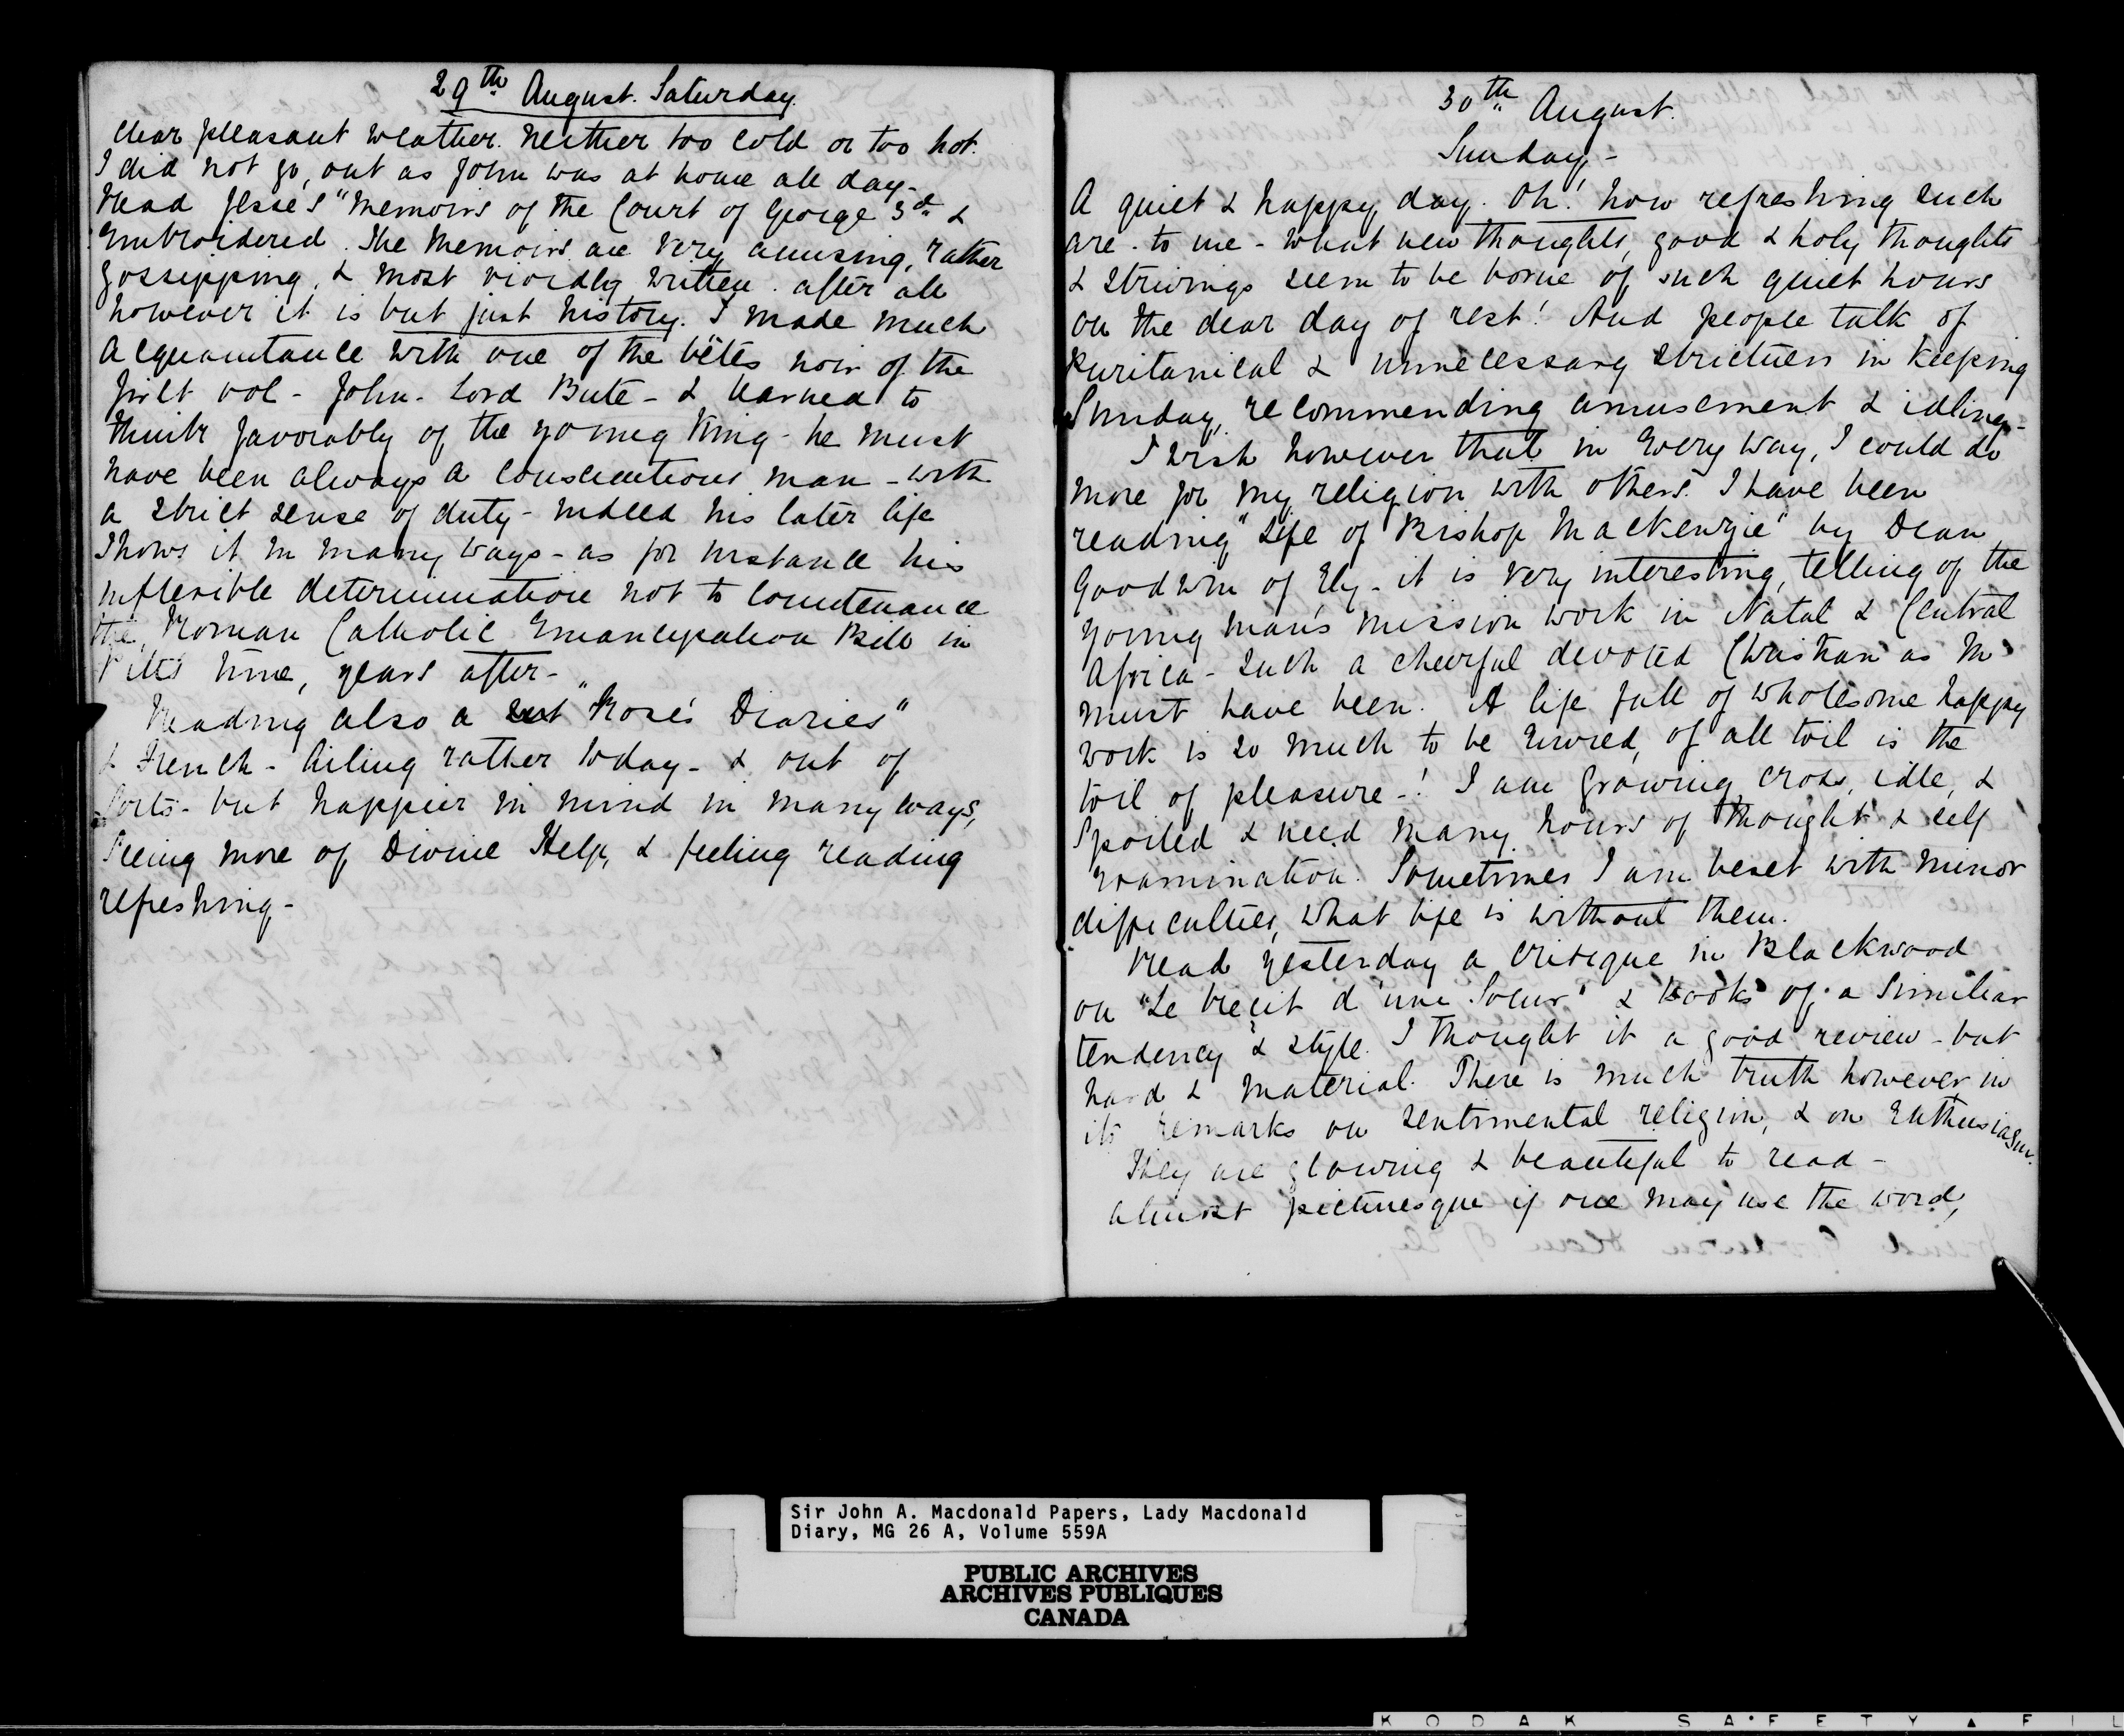 29th August. Saturday.
clear pleasant weather. Neither too cold or too hot.
I did not go, out as John was at home all day -
Read Jesse's "Memoirs of the Court of George 3rd &
Embroidered. The Memoirs are very amusing, rather
gossipping, & most vividly written. after all
however it is but just history. I made much
acquaintance with one of the bêtes noir of the
first vol - John - Lord Bute - & learned to
think favorably of the young King - he must
have been always a conscientious man - with
a strict sense of duty - indeed his later life
shows it in many ways - as for instance his
inflexible determination not to countenance
the, Roman Catholic Emancipation Bill in
Pitts time, years after -
Reading also a "Rose's Diaries"
& French - Ailing rather today - & out of
sorts - but happier in mind in many ways,
Seeing more of Divine Help, & feeling reading
refreshing -
30th August.
Sunday -
A quiet & happy day. Oh! how refreshing such
are - to me - what new thoughts, good & holy thoughts
& strivings seem to be borne of such quiet hours
on the dear day of rest! And people talk of
puritanical & unnecessary strictness in keeping
Sunday, recommending amusement & idling -
I wish however that in every way, I could do
more for my religion with others. I have been
reading "Life of Bishop Mackenzie" by Dean
Goodwin of Ely - it is very interesting, telling of the
young man's mission work in Natal & Central
Africa - Such a cheerful devoted Christian as he
must have been. A life full of wholesome happy
work is so much to be envied, of all toil is the
toil of pleasure -! I am growing cross, idle, &
spoiled & need many hours of thought & self
examination. Sometimes I am beset with minor
difficulties, what life is without them.
Read yesterday a critique in Blackwood
on "Le Recit d'une Soeur" & books of a similiar
tendency & style. I thought it a good review - but
hard & material. There is much truth however in
its remarks on sentimental religion, & on Enthusiasm.
They are glowing & beautiful to read -
almost picturesque if one may use the word,
Sir John A. Macdonald Papers, Lady Macdonald
Diary, MG 26 A, Volume 559A
PUBLIC ARCHIVES
ARCHIVES PUBLIQUES
CANADA
KODAK SAFETY FIL